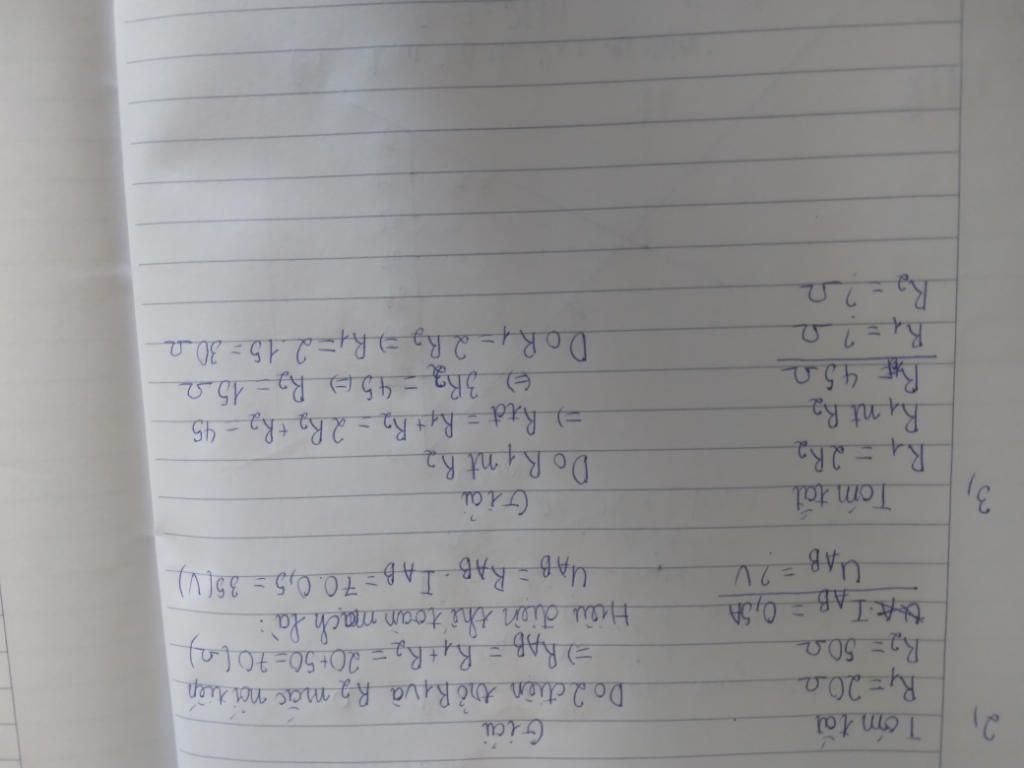 2,
Tóm tắt
R1 = 20Ω
R2 = 50Ω
IAB = 0,5A
UAB = ? V
Giải
Do 2 điện trở R1 và R2 mắc nối tiếp
=> RAB = R1 + R2 = 20 + 50 = 70 (Ω)
Hiệu điện thế toàn mạch là:
UAB = RAB . IAB = 70 . 0,5 = 35 (V)
3,
Tóm tắt
R1 = 2R2
R1 nt R2
= 45Ω
R1 = ? Ω
R2 = ? Ω
Giải
Do R1 nt R2
=> Rtđ = R1 + R2 = 2R2 + R2 = 45
<=> 3R2 = 45 <=> R2 = 15Ω
Do R1 = 2R2 => R1 = 2 . 15 = 30Ω